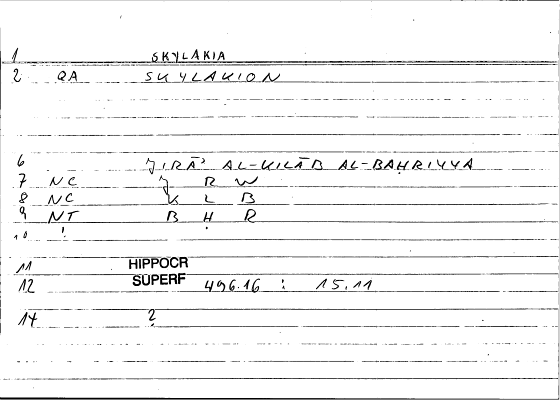 1 SKYLAKIA
2 QA SKYLAKION
6 ǦIRĀʾ AL-KILĀB AL-BAḤRIYYA
7 NC Ǧ R W
8 NC K L B
9 NT B Ḥ R
10 !
11 HIPPOCR
12 SUPERF 496.16 : 15.11
14 ?